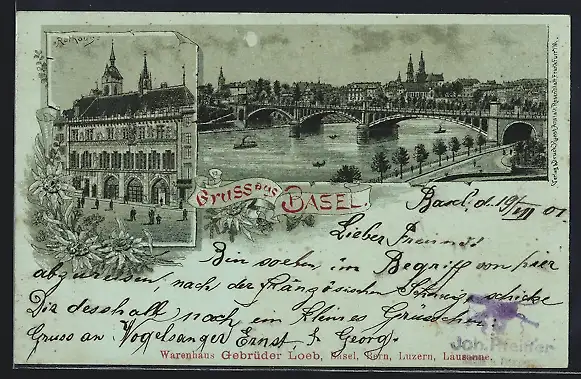 Rathaus
Gruss aus BASEL.
Basel, d. 19/VII 01
Lieber Freund!
Bin soeben im Begriff von hier
abzureisen, nach der französischen Schweiz, schicke
Dir desshalb noch ein kleines Grusschen.
Gruss an Vogelsanger Ernst, & Georg.
Joh. Pfeiffer
Warenhaus Gebrüder Loeb, Basel, Bern, Luzern, Lausanne.